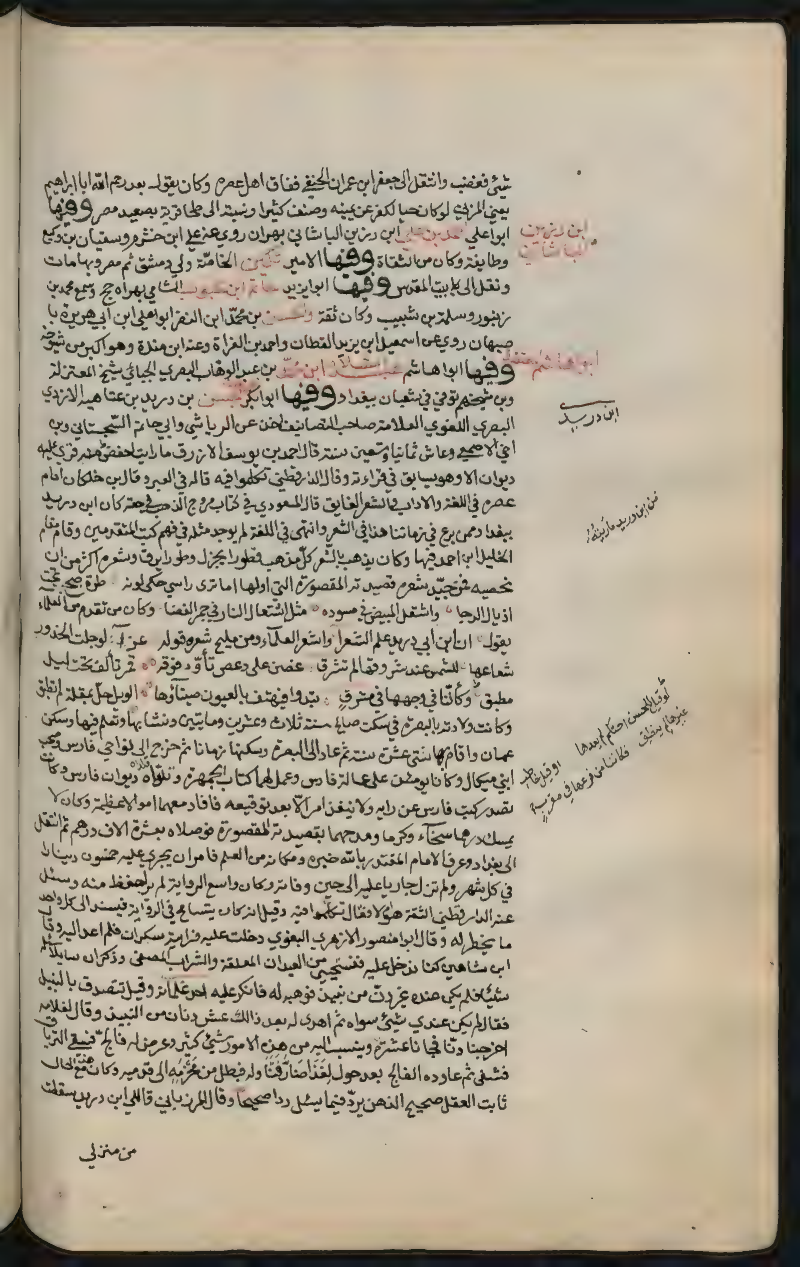 شيئ فغضب وانتقل الى جعفر ابن عمران الحنفي ففاق اهل عصره وكان يقول بعد رحم الله ابا ابراهيم
يعني المزني لو كان حيا لكفر عن يمينه وصنف كثيرا ونسبته الى طحا قرية بصعيد مصر وفيها
ابو اعلي محمد بن علي ابن رزين الباشاني بهراه روى عن علي ابن خشرم وسفيان بن وكيع
وطايفة وكان من الثقاة وفيها الامير تكين الخاصة ولي دمشق ثم مصر وبها مات
ونقل الى بيت المقدس وفيها ابو ايزيد حاتم ابن محبوب الشامي بهراه حج وسمع محمد بن
زنبور وسلمة بن شبيب وكان ثقة والحسن بن محمد ابن النضر ابو اعلي ابن ابي هريرة با
صبهان روى عن اسمعيل ابن يزيد القطان واحمد بن الفراة وعنه ابن مندة وهو اكبر من شيوخه
وفيها ابو هاشم عبد السلام ابن محمد بن عبد الوهاب البصري الجبائي شيخ المعتزلة
وبن شيخهم توفي في شعبان ببغداد وفيها ابو ابكر محمد بن الحسن بن دريد بن عتاهية الازدي
البصري اللغوي العلامة صاحب التصانيف اخذ عن الرياشي وابي حاتم السجستاني وبن
اخي الاصمعي وعاش ثمانيا وتسعين سنة قال احمد بن يوسف الازرق ما رايت احفظ منه قري عليه
ديوان الا وهو يسابق في قراءته وقال الدارقطني تكلموا فيه قاله في العبر وقال بن خلكان امام
عصره في اللغة والاداب والشعر الفايق قال المسعودي في كتاب مروج الذهب في حقه كان ابن دريد
ببغداد ممن برع في زماننا هذا في الشعر وانتهى في اللغة لم يوجد مثله في فهم كتب المتقدمين وقام مقام
الخليل ابن احمد فيها وكان يذهب بالشعر كل مذهب فطورا يجزل وطورا يرق وشعره اكثر من ان
نحصيه فمن جيد شعره قصيدته المقصورة التي اولها اما ترى راسي حكى لونه طرة صبح تحت
اذيال الدجا واشتعل المبيض في مسوده مثل اشتعال النار في جمر الغضا وكان من تقدم من العلماء
يقول ان ابن ابي دريد علم الشعرا واشعر العلماء ومن مليح شعره قوله غراء لو جلت الخدور
شعاعها للشمس عند شروقها لم تشرق غصن على دعص تأود فوقه قمر تألف تحت ليل
مطبق وكأننا في وجهها في مشرق تبدوا فيهتف بالعيون ضياؤها الويل حل بمقلة لم تطبق
وكانت ولادته بالبصرة في سكت صالح سنة ثلاث وعشرين ومايتين ونشا بها وتعلم فيها وسكن
عمان واقام بها اثنتي عشرة سنة ثم عاد الى البصرة وسكنها زمانا ثم خرج الى نواحي فارس وصحب
ابني ميكال وكانا يومئذ على عمالة فارس وعمل لهما كتاب الجمهرة وقلداه ديوان فارس وكانت
تصدر كتب فارس عن رايه ولا ينفذ امر الا بعد توقيعه فافاد معهما اموالا عظيمة وكان لا
يمسك درهما سخاء وكرما ومدحهما بقصيدته المقصورة فوصلاه بعشرة الاف درهم ثم انتقل
الى بغداد وعرف الامام المقتدر بالله خبره ومكانه من العلم فامر ان يجرى عليه خمسون دينارا
في كل شهر ولم تزل جارية عليه الى حين وفاته وكان واسع الرواية لم ير احفظ منه وسئل
عنه الدارقطني الثقة هو ام لا فقال تكلموا فيه وقيل انه كان يتسامح في الرواية فيسند الى كل واحد
ما يخطر له وقال ابو امنصور الازهري اللغوي دخلت عليه فرايته سكران فلم اعد اليه وقال
ابن شاهين كنا ندخل عليه فنستحيي من العيدان المعلقة والشراب المصفى وذكر ان سايلا سئله
شيئا فلم يكن عنده غير دن من نبيذ فوهبه له فانكر عليه احد غلمانه وقيل تتصدق بالنبيذ
فقال لم يكن عندي شيئ سواه ثم اهدى له بعد ذالك عشر دنان من النبيذ وقال لغلامه
اخرجنا دنا فجانا عشرة وينسب اليه من هذه الامور شيئ كثير وعرض له فالج فسقي الترياق
فشفي ثم عاوده الفالج بعد حول لغذا ضار تناوله فبطل من محزمه الى قدميه وكان مع هذه الحال
ثابت العقل صحيح الذهن يرد فيما يسئل ردا صحيحا وقال المرزباني قال لي ابن دريد سقطت
من منزلي
ابن رزين
الباشاني
ابو اهاشم المعتزلي
ابن دريد